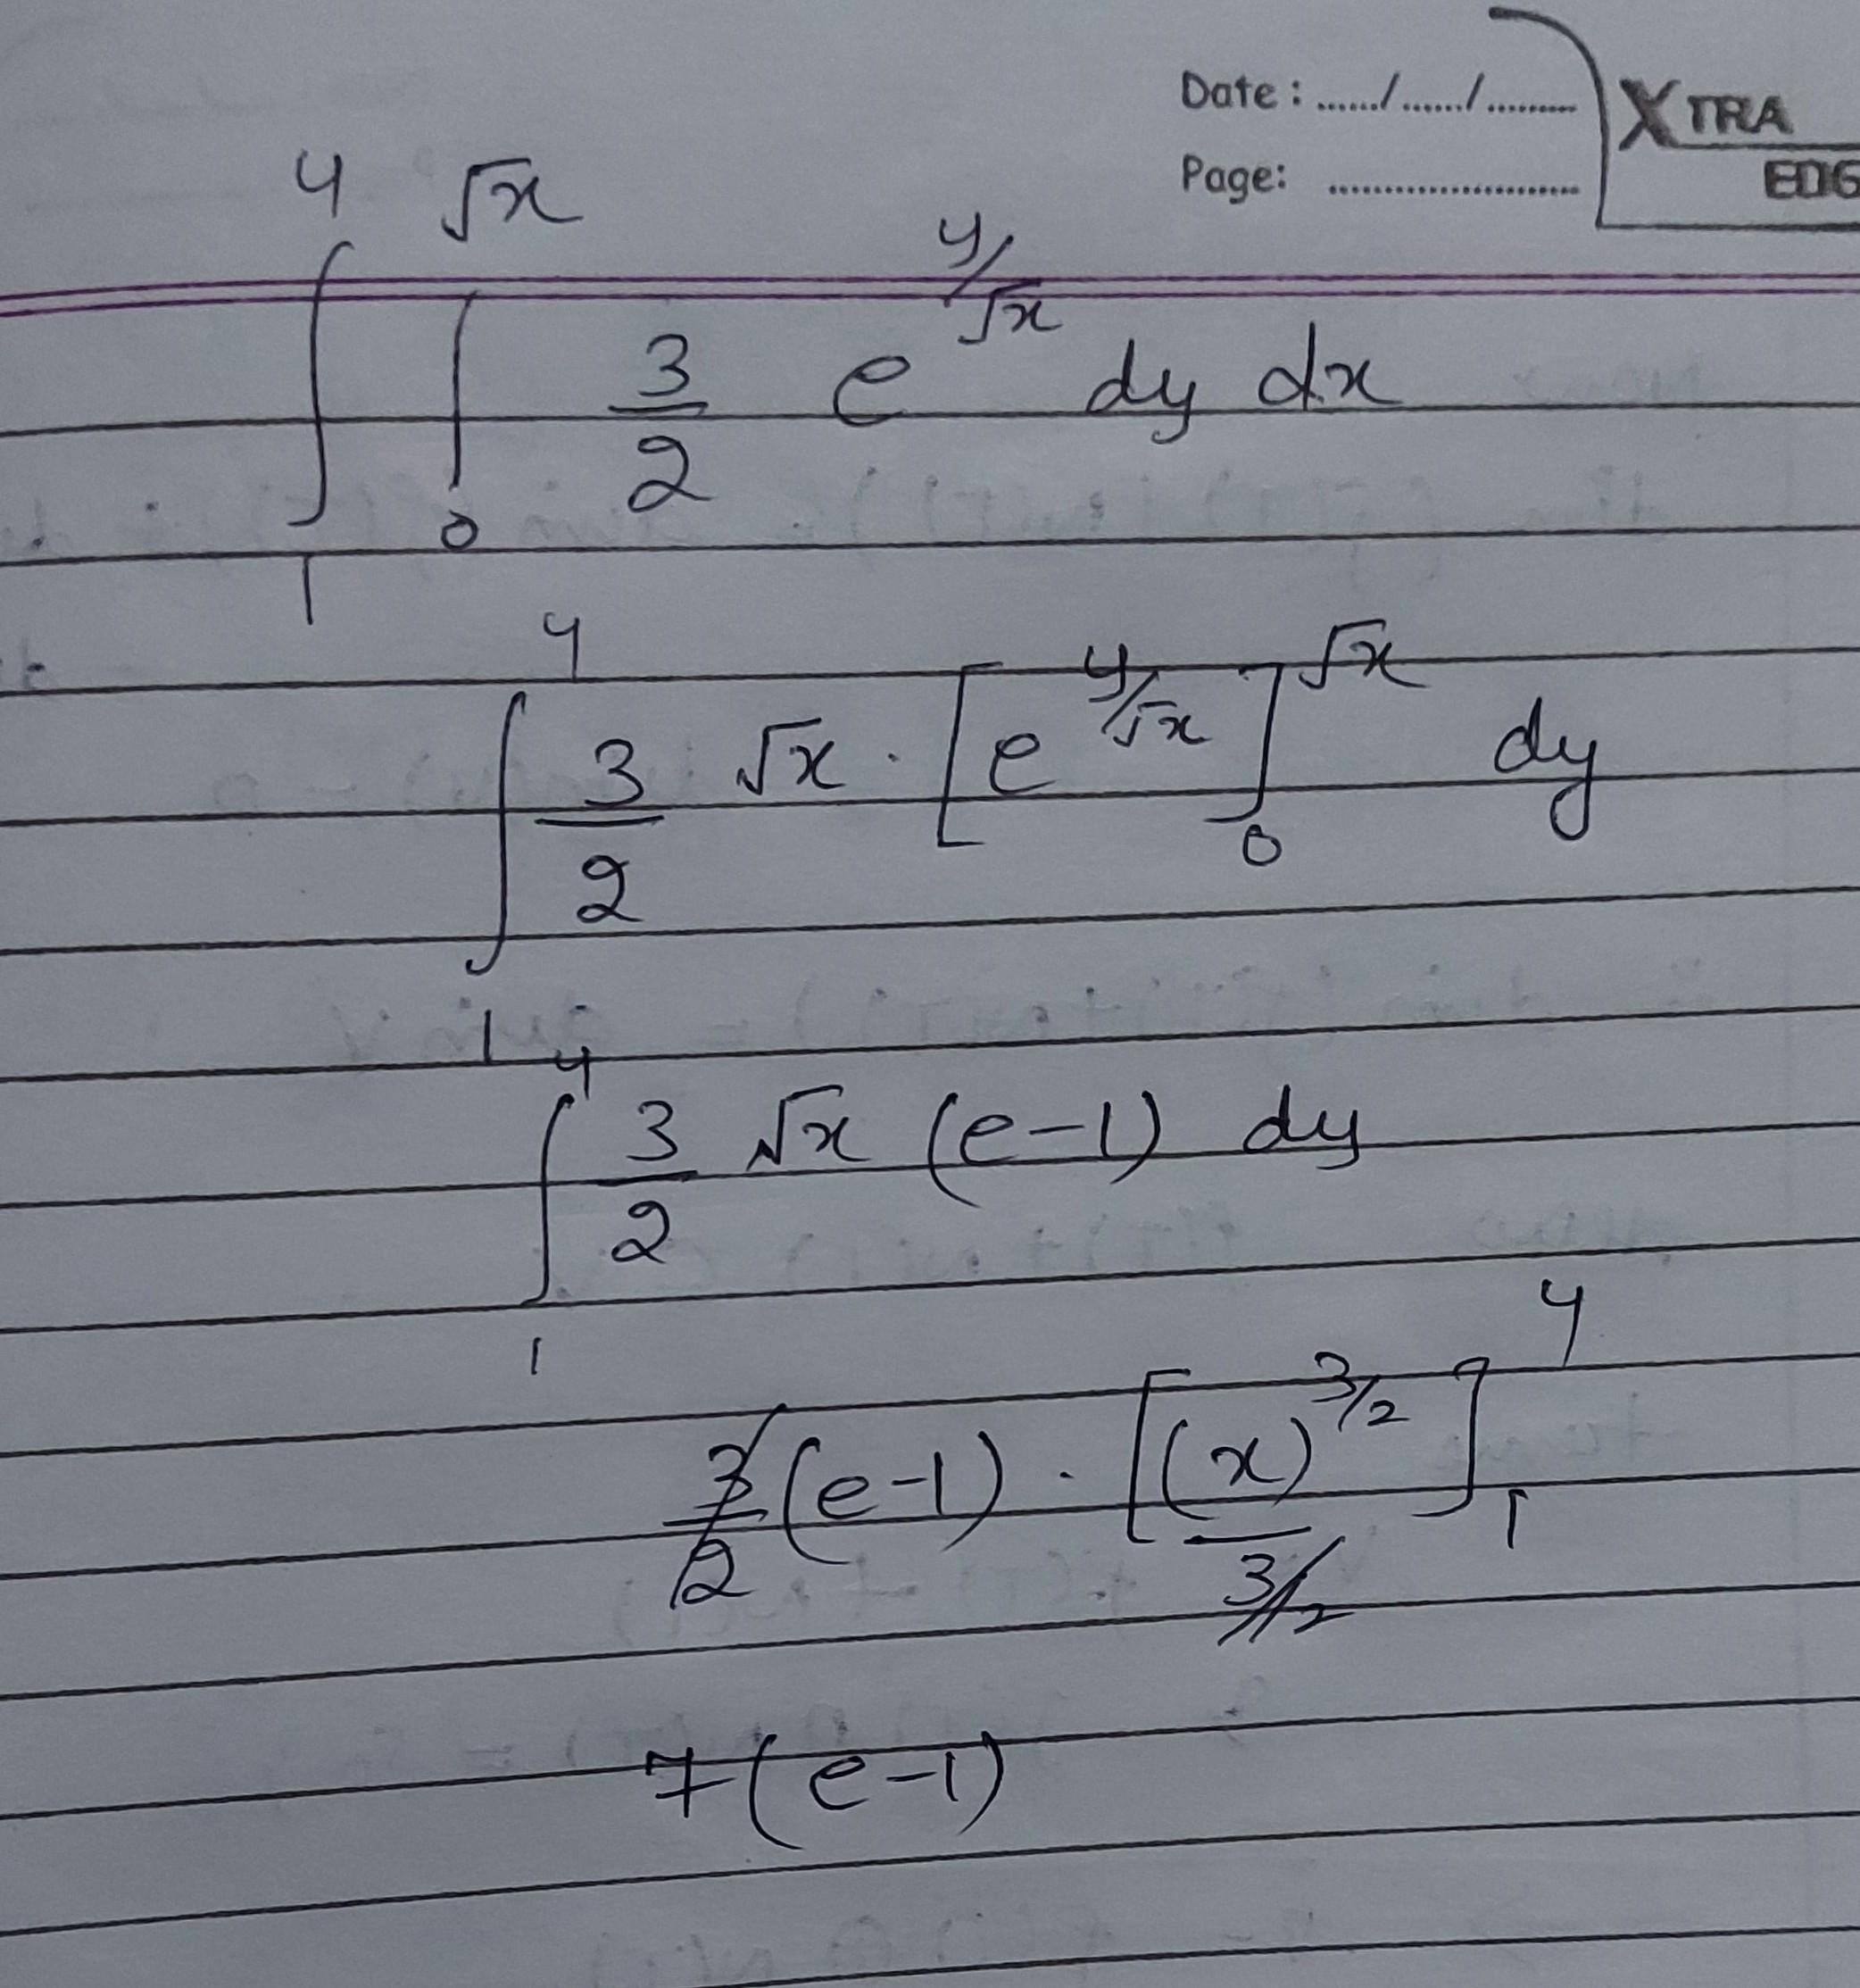 Date : ....../....../.........
XTRA
Page: ..........................
EDG
∫₁⁴ ∫₀^√x 3/2 e^(y/√x) dy dx
∫₁⁴ 3/2 √x · [e^(y/√x)]₀^√x dy
∫₁⁴ 3/2 √x (e-1) dy
3/2 (e-1) · [(x)^(3/2) / 3/2]₁⁴
7(e-1)